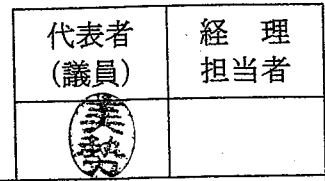 代表者
(議員)
経 理
担当者
美勢